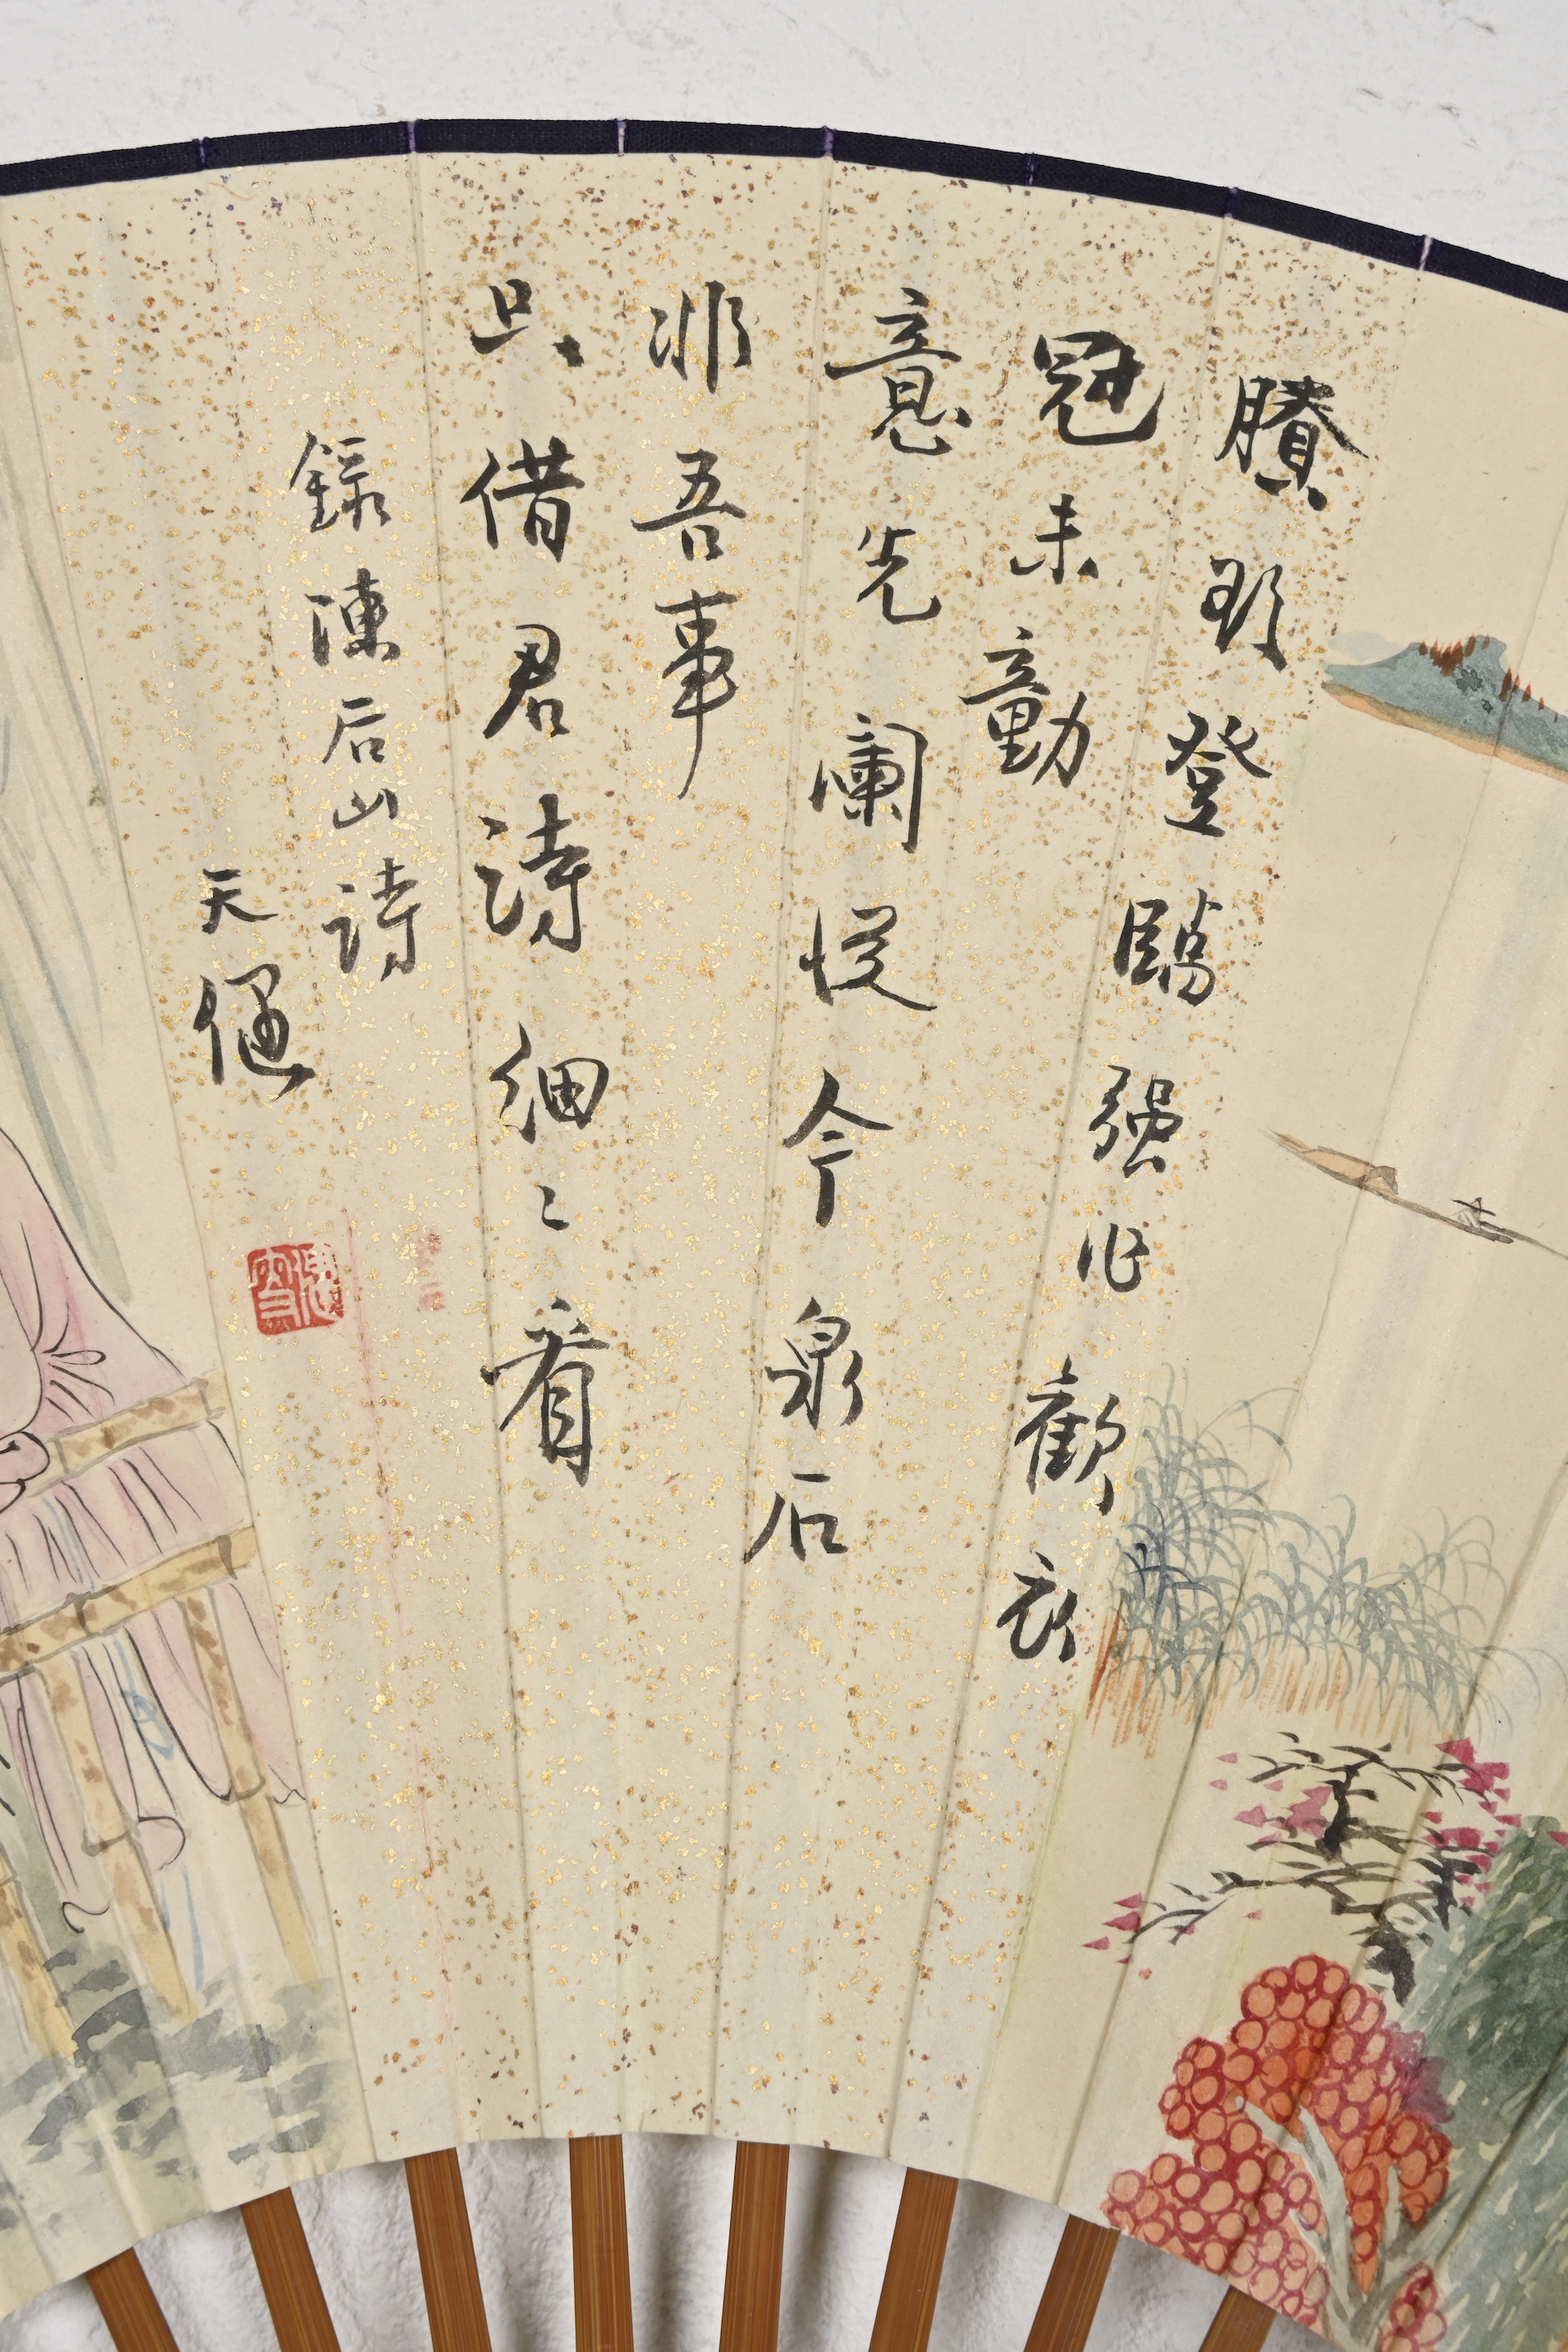 賸欲登臨强作歡衣
冠未動
意先闌從今泉石
非吾事
只借君詩細〻看
錄陳后山詩
天僊